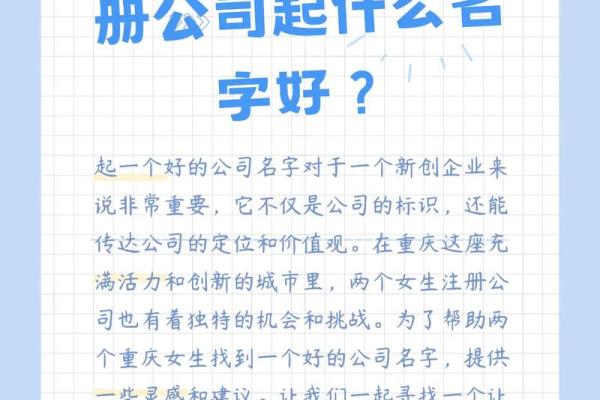 册公司起什么名
字好？
起一个好的公司名字对于一个新创企业来
说非常重要，它不仅是公司的标识，还能
传达公司的定位和价值观。在重庆这座充
满活力和创新的城市里，两个女生注册公
司也有着独特的机会和挑战。为了帮助两
个重庆女生找到一个好的公司名字，提供
一些灵感和建议。让我们一起寻找一个让